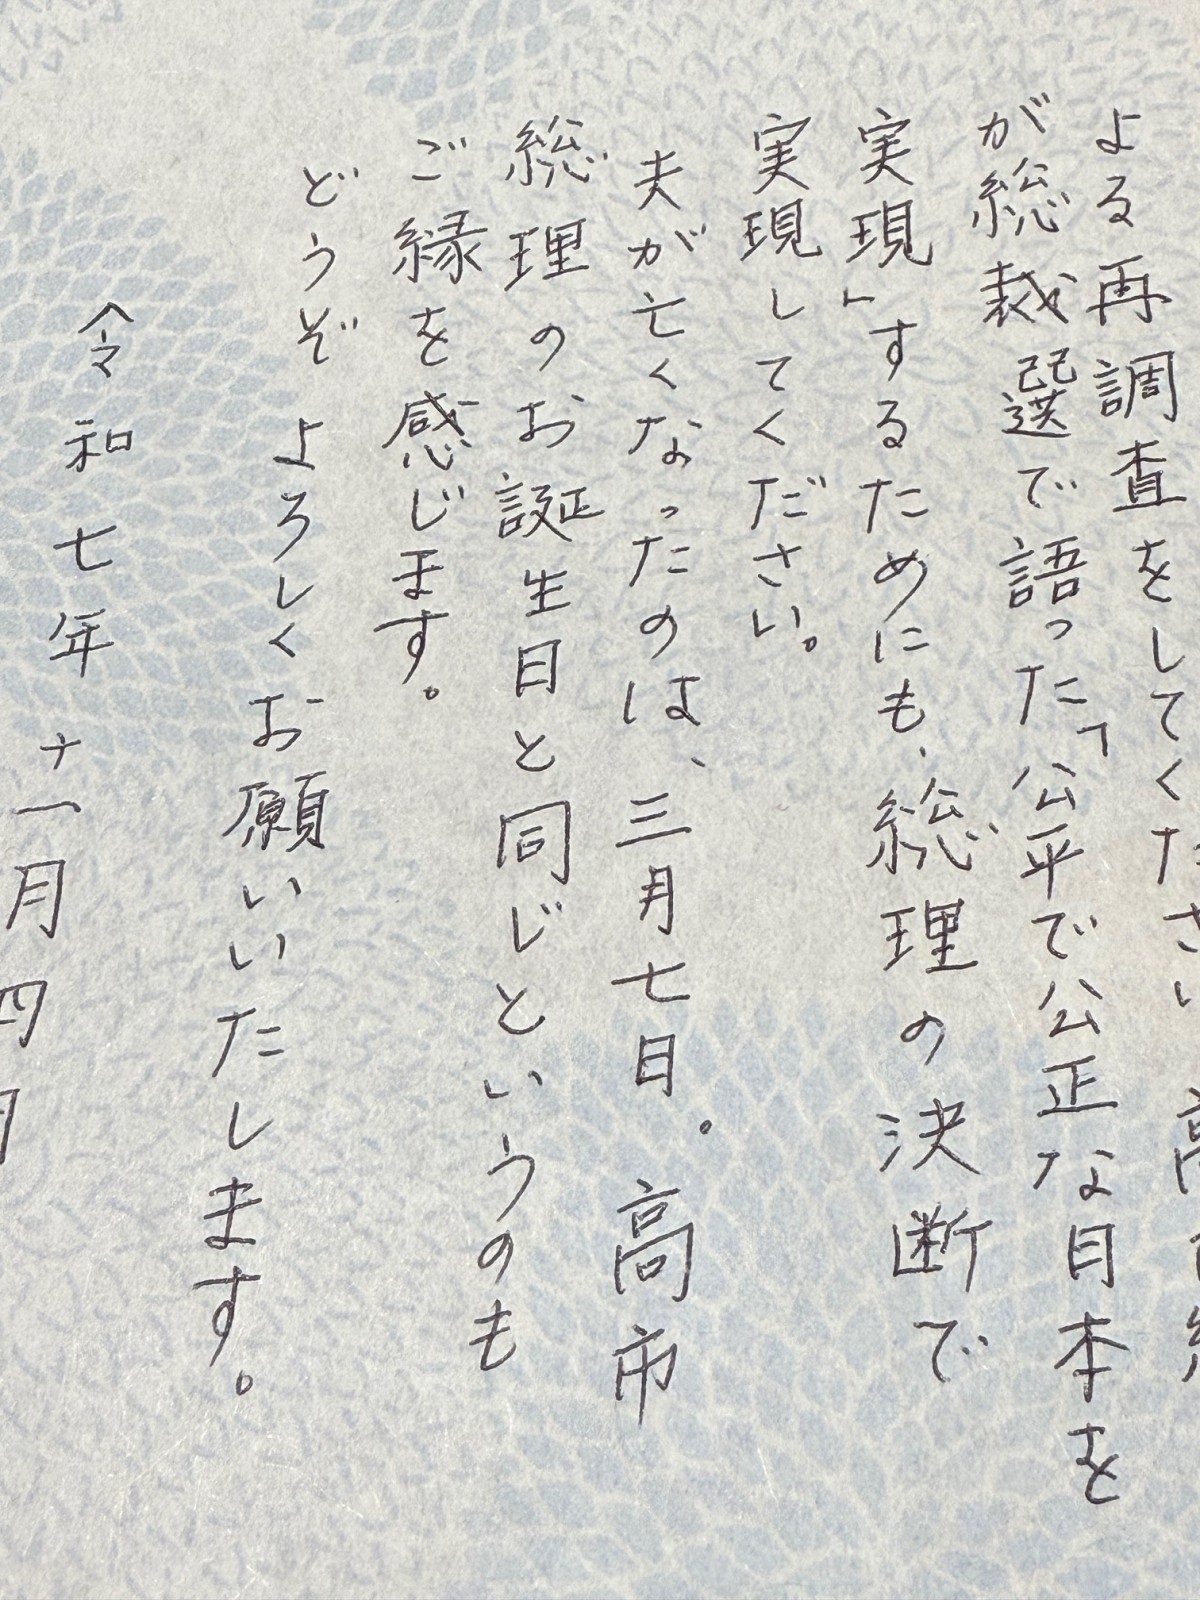 よる再調査をしてください。高市総
が総裁選で語った「公平で公正な日本を
実現」するためにも、総理の決断で
実現してください。
夫が亡くなったのは、三月七日。高市
総理のお誕生日と同じというのも
ご縁を感じます。
どうぞよろしくお願いいたします。
令和七年十一月四日